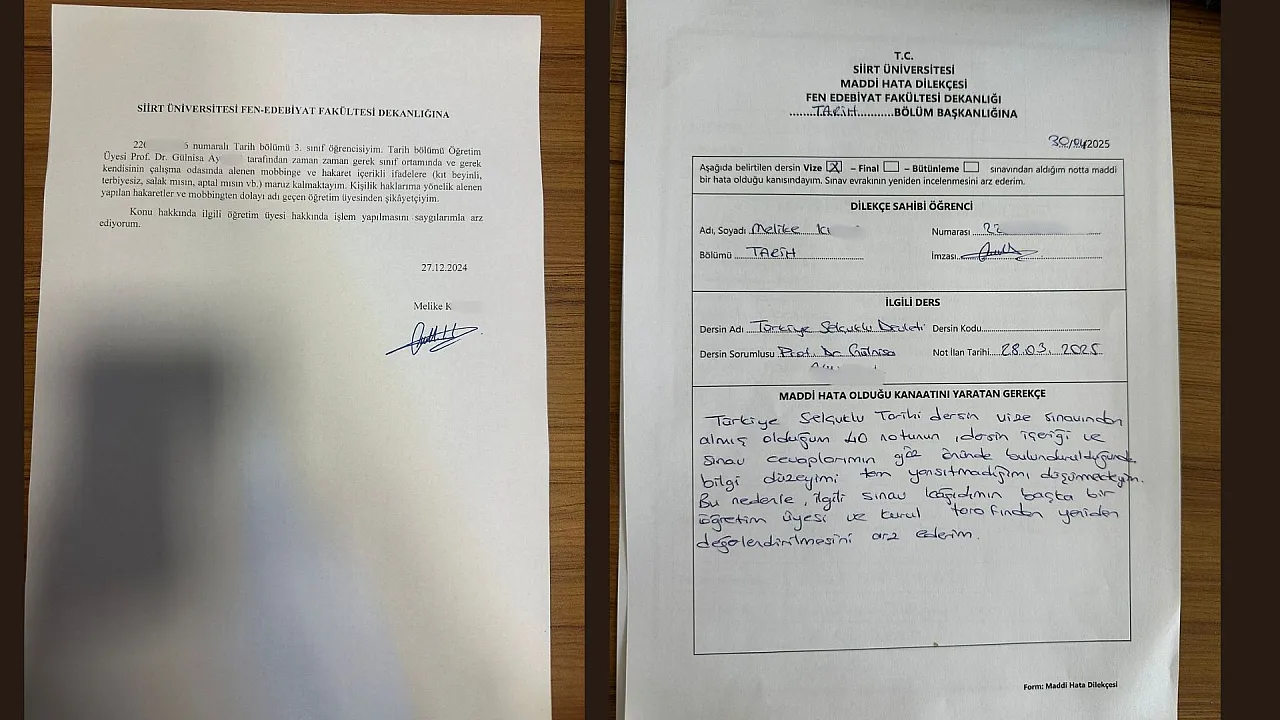 SİİRT ÜNİVERSİTESİ FEN-EDEBİYAT FAKÜLTESİ DEKANLIĞINA
220 5 numaralı Tarih bölümü 3. sınıf öğrencisiyim. Tarih bölümü Öğretim
Üyesi Prof. Dr. Gülnisa Ay tarafından zaman zaman gerek sınıf ortamında ve gerek
kendisinin çalışma odasında alenen mobbinge ve hakaret içerikli ifadelere (kıt beyinli,
terbiyesiz, salak mısın, aptal mısın vb.) maruz kalmaktayım. Kişilik haklarıma yönelik alenen
yapılan hakaretler ve mobbingten dolayı adı geçen öğretim üyesinden şikâyetçiyim.
Konu hakkında ilgili öğretim üyesi hakkında işlem yapılmasını saygılarımla arz
ediyorum.
27.12.2024
Melike K
T.C.
SİİRT ÜNİVERSİTESİ
MADDİ HATA DİLEKÇESİ
FEN EDEBİYAT FAKÜLTESİ DEKANLIĞI
......TARİH...........BÖLÜM BAŞKANLIĞINA
30/04/2025
Aşağıda belirtilen dersin Vize X – Final – Bütünleme sınavından aldığım notta maddi
bir hata olduğu kanısındayım. Sınav evrakının yeniden incelenmesini arz ederim.
DİLEKÇE SAHİBİ ÖĞRENCİ
Adı, Soyadı Melike K Numarası 22
Bölümü TARİH İmzası
İLGİLİ DERS
Dersin Adı Türkiye Selçuklu Devleti Dersin Kodu
Dersin Sorumlusu Prof. Dr. Gülnisa Not İlan Tarihi 28.03.2025
MADDİ HATA OLDUĞU KANAATINI YARATAN GEREKÇE
Türkiye Selçuklu Tarihi dersin sınavından
almış olduğum 40 notunun, içeriği ve
göz önünde bulundurulduğunda
bilgi düzeyimi tam yansıtmadığını düşünmekteyim.
Bu nedenle, ilgili sınav kağıdının başka bir
öğretim üyesi ve kurul tarafından yeniden
değerlendirilmesini arz ederim.
Form: Maddi Hata Dilekçesi